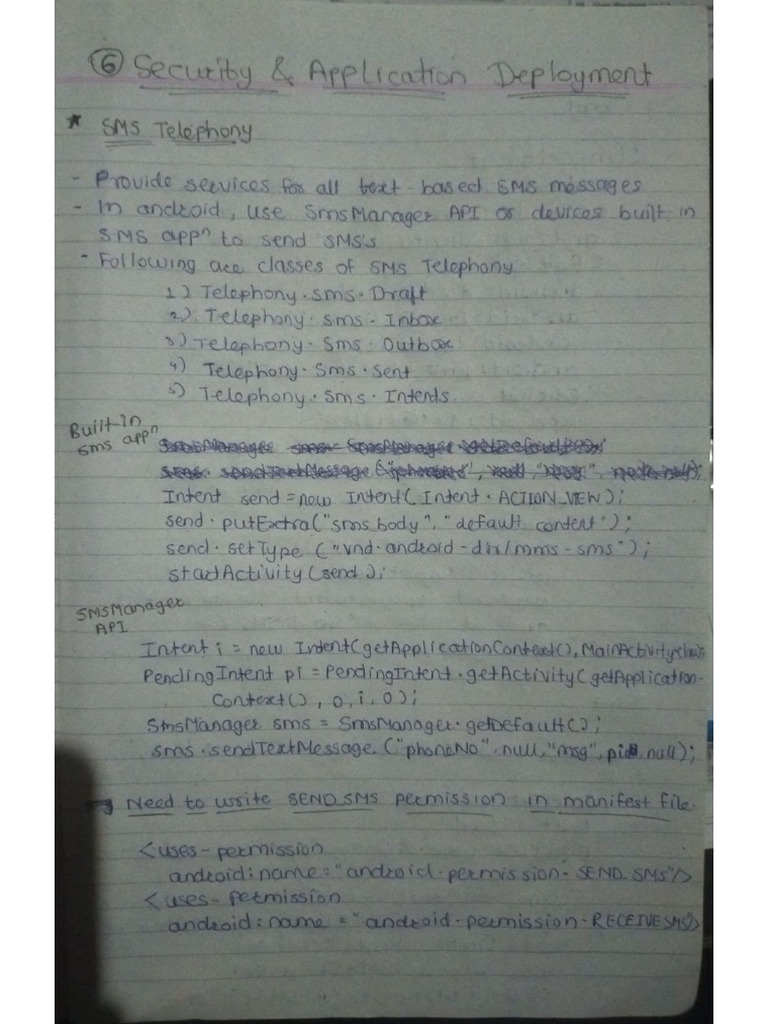 ⑥ Security & Application Deployment
* SMS Telephony
- Provide services for all text-based SMS messages
- In android, use SmsManager API or devices built in
SMS appⁿ to send SMS's
- Following are classes of SMS Telephony
1) Telephony.sms.Draft
2) Telephony.sms.Inbox
3) Telephony.Sms.Outbox
4) Telephony.Sms.Sent
5) Telephony.Sms.Intents
Built-In
sms appⁿ
Intent send = new Intent(Intent.ACTION_VIEW);
send.putExtra("sms_body", "default content");
send.setType ("vnd.android-dir/mms-sms");
startActivity(send);
SMSManager
API
Intent i = new Intent(getApplicationContext(), MainActivity.class);
PendingIntent pi = PendingIntent.getActivity(getApplication-
Context(), 0, i, 0);
SmsManager sms = SmsManager.getDefault();
sms.sendTextMessage ("phoneNo", null, "msg", pi, null);
→ Need to write SEND_SMS permission in manifest file.
<uses-permission
android:name="android.permission.SEND_SMS"/>
<uses-permission
android:name="android.permission.RECEIVESMS"/>